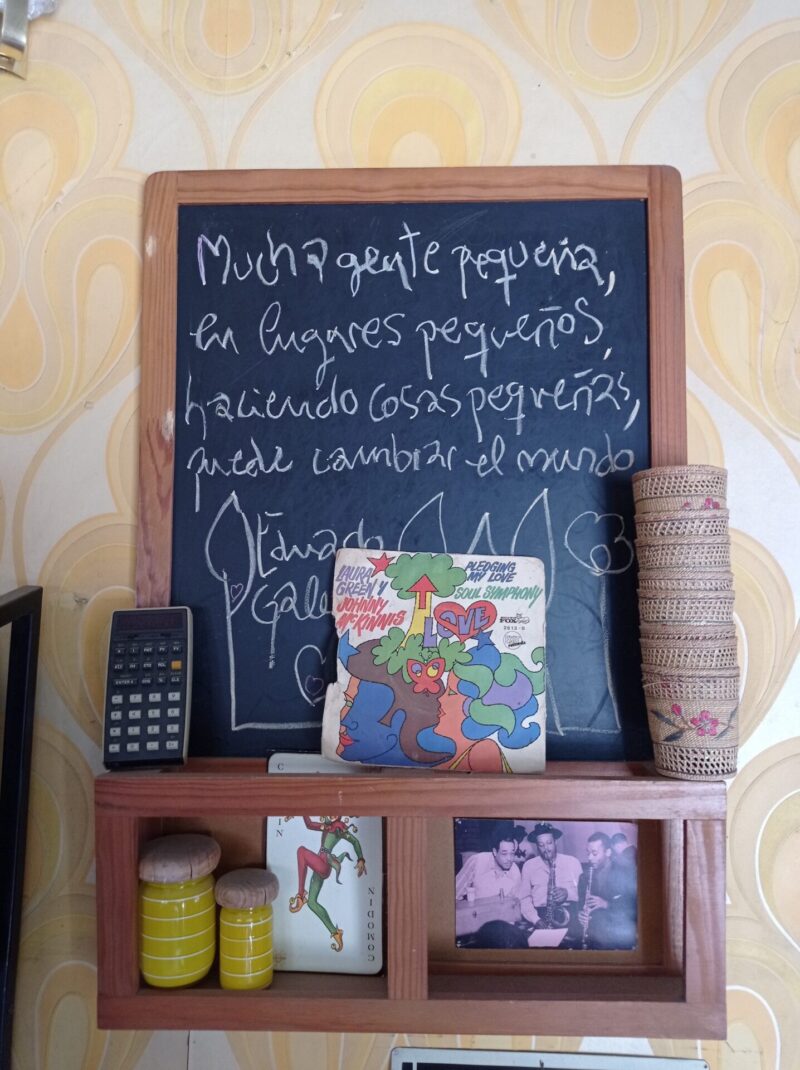 Mucha gente pequeña,
en lugares pequeños,
haciendo cosas pequeñas,
puede cambiar el mundo
Eduardo
Gale
LAURA
GREEN Y
JOHNNY
McKINNIS
PLEDGING
MY LOVE
SOUL SYMPHONY
LOVE
FOX
COMODIN